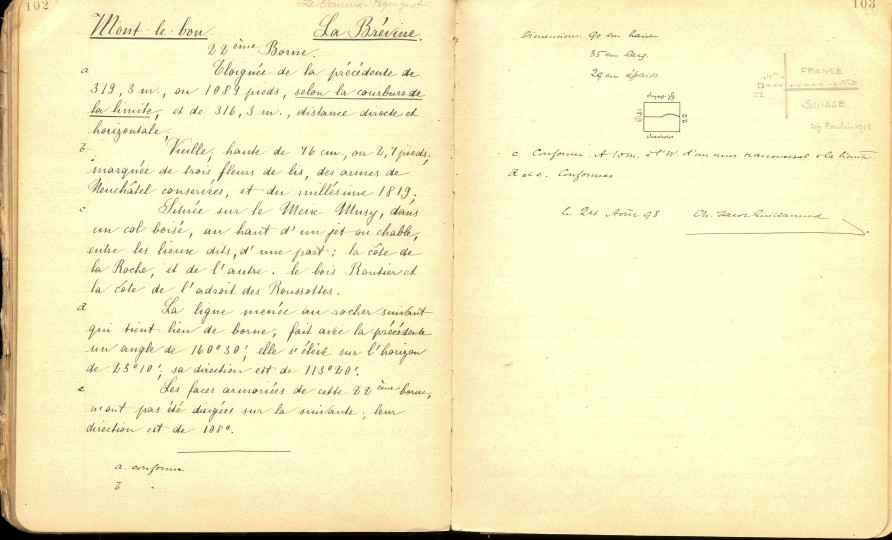 102
Mont-le-bon. La Brévine.
22ème Borne.
a Eloignée de la précédente de
319,3 m., ou 1089 pieds, selon la courbure de
la limite, et de 316,3 m., distance directe et
horizontale.
b Vieille, haute de 76 cm., ou 2,7 pieds,
marquée de trois fleurs de lis, des armes de
Neuchâtel conservées, et du millésime 1819.
c Située sur le Meix Musy, dans
un col boisé, au haut d'un jet ou chable,
entre les lieux dits, d'une part : la côte de
la Roche, et de l'autre : le bois Routier et
la côte de l'adroit des Roussottes.
d La ligne menée au rocher suivant
qui tient lieu de borne, fait avec la précédente
un angle de 160° 30', elle s'élève sur l'horizon
de 25° 10'; sa direction est de 113° 20'.
e Les faces armoriées de cette 22ème borne,
n'ont pas été dirigées sur la suivante; leur
direction est de 108°.
a. conforme
b "
103
Dimensions: 90 cm haut
35 cm larg.
29 cm épaiss.
1819
22
FRANCE
22
SUISSE
1918
c. Conforme. A 10m. à l'W. d'un mur transversal à la limite
d et e. Conformes
le 24 Août 98 Ch. Jacot Guillarmod